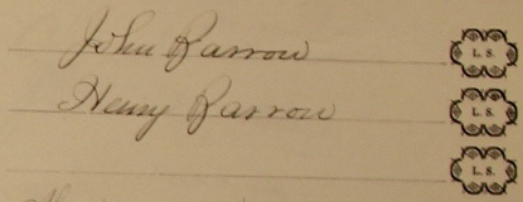 John Barrow L. S.
Henry Barrow L. S.
L. S.